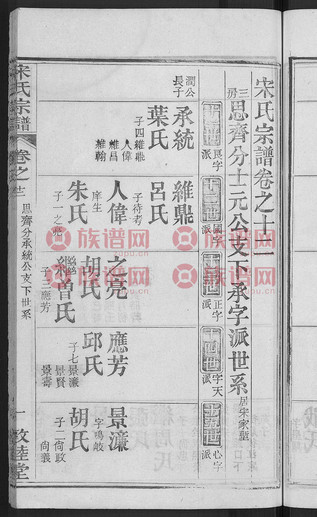 宋氏宗譜卷之十二
三房思齊分士元公支下承字派世系居宋家壟
艮字派
十二世國字派
正字派
十四世天字派
十五世心字派
潤公長子
承統
葉氏
子四維鼎
人偉
維昌
維翰
維鼎
呂氏
子待考
人偉
庠生
朱氏
子一之亮
之亮
胡氏
曾氏
子三應芳
應芳
邱氏
子七景濂
景賢
景壽
景濂
字鳴岐
胡氏
子二尚政
尚義
宋氏宗譜
卷之十二
思齊分承統公支下世系
一
敦睦堂
族谱网